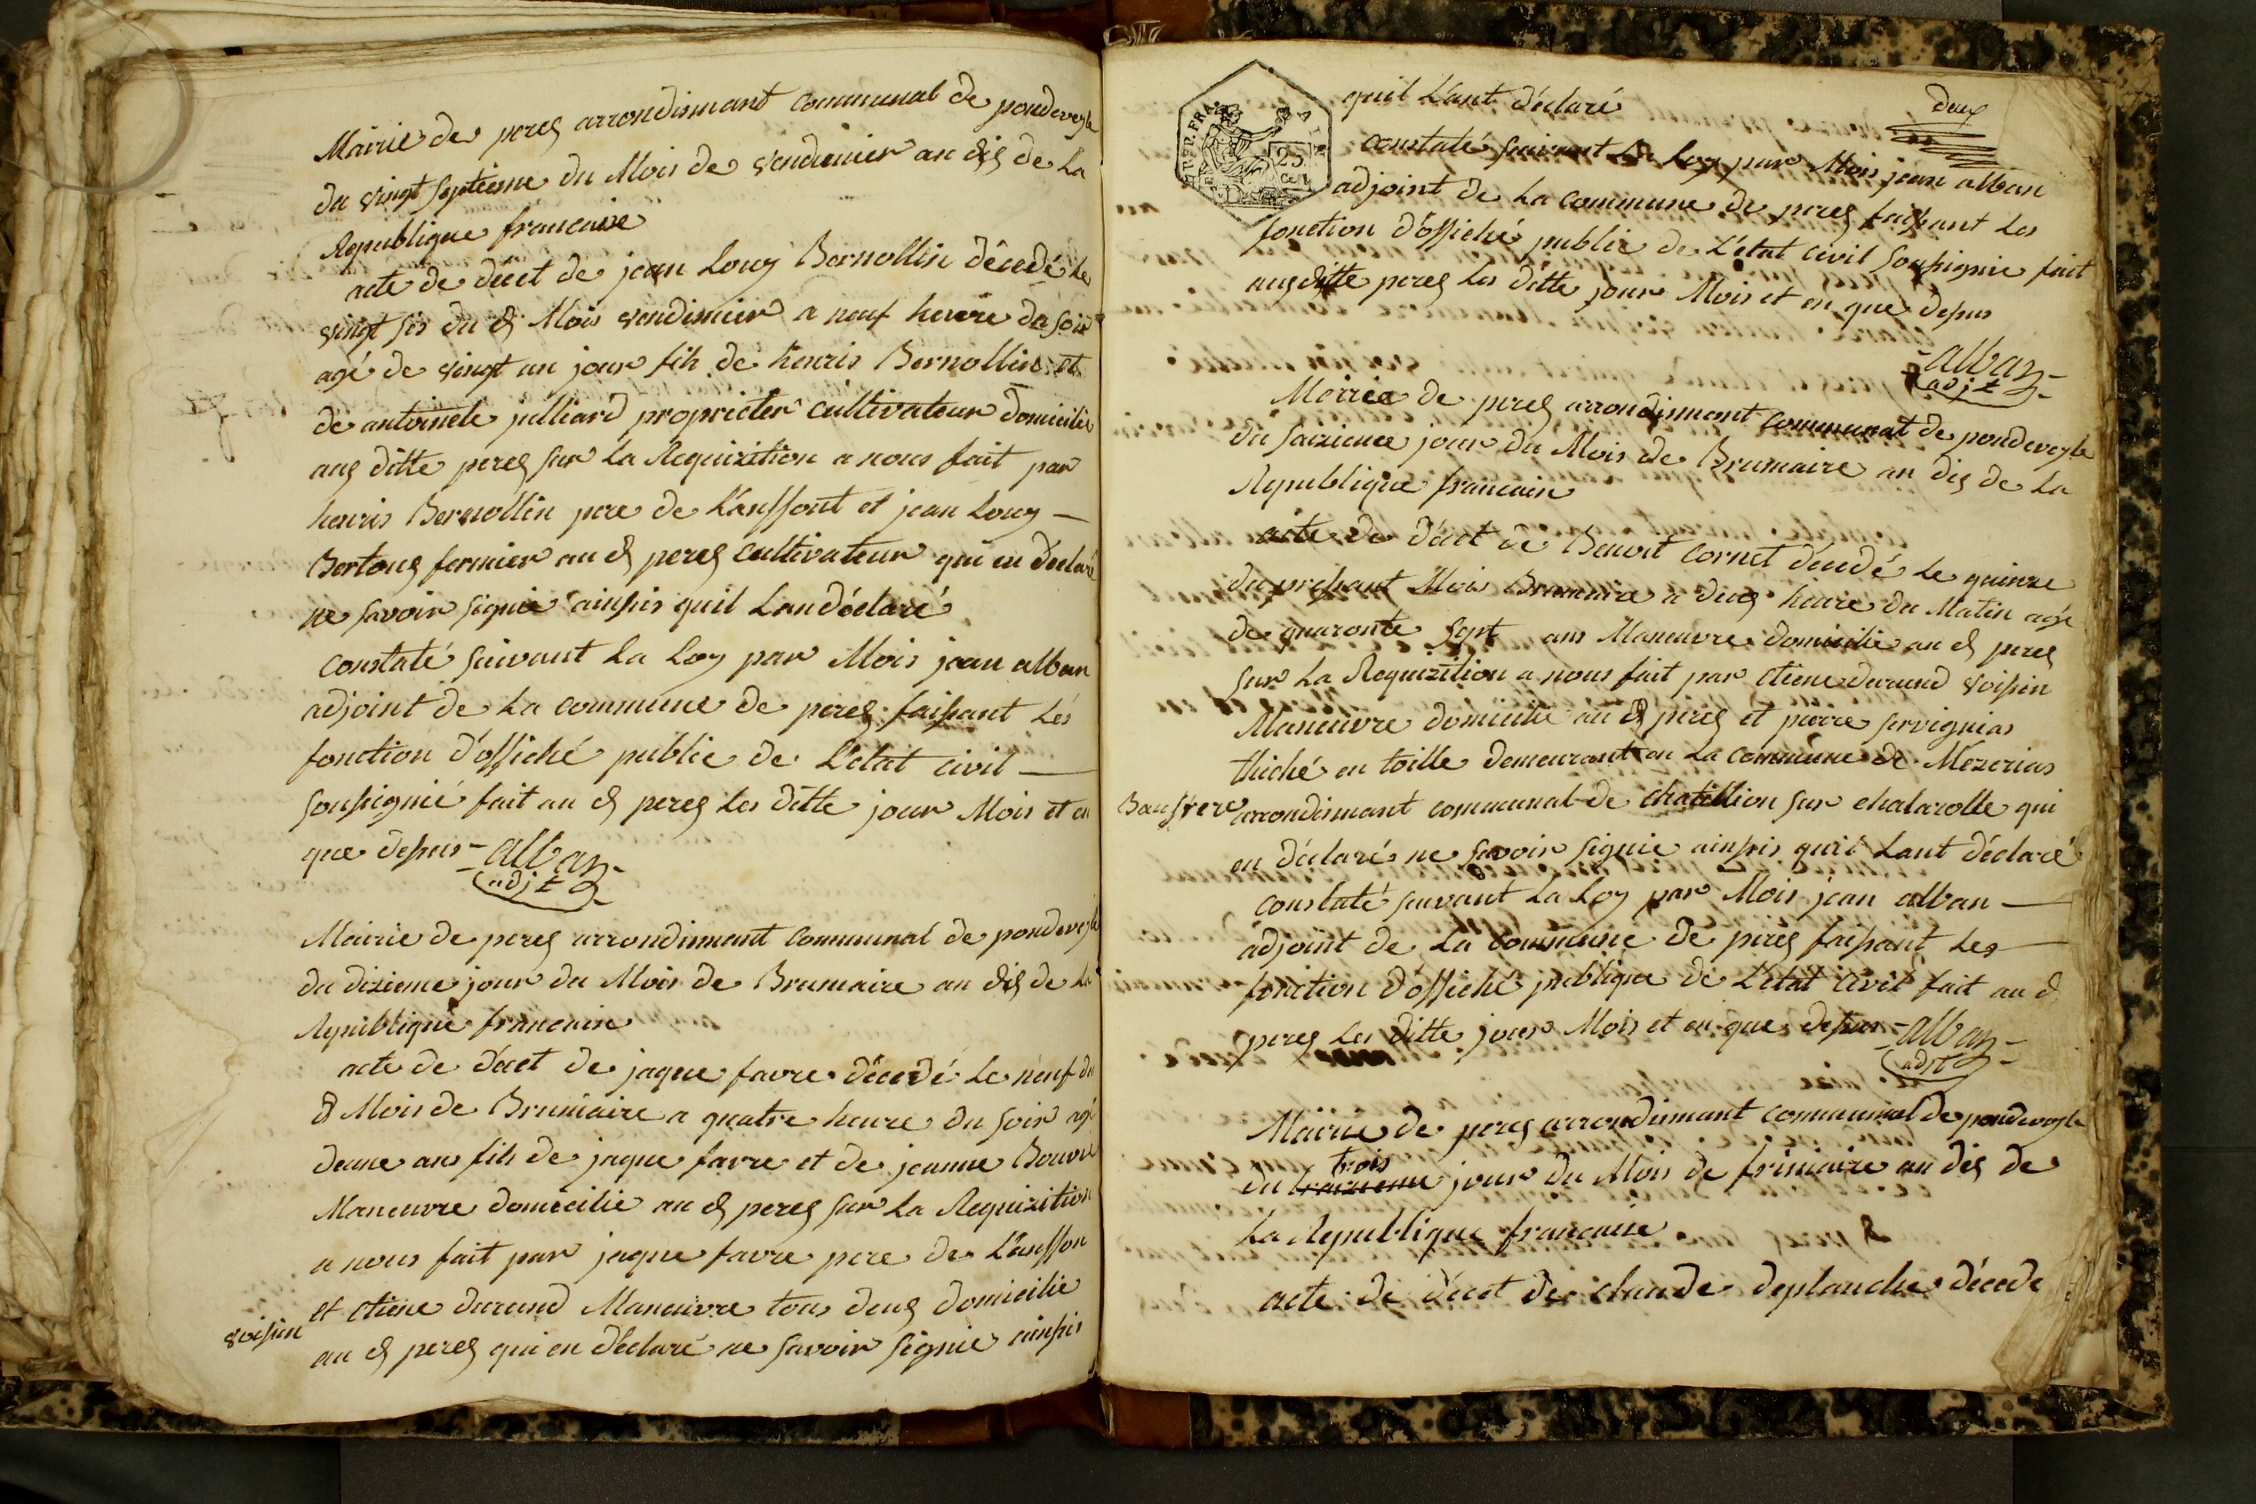 Mairie de perex arrondismant communal de pondeveyle
du vingt septieme du Mois de vendimier an dix de La
Republique francaise
acte de décet de jean Louy Bernollin décedé Le
vingt sis du d Mois vendimier a neuf heure du soir
agé de vingt un jour fils de henris Bernollin et
de antoinete julliard proprieter cultivateur domicilié
aus ditte perex sur La Requizition a nous fait par
henris Bernollin pere de L'anffont et jean Louy —
Bertoux fermier au d perex cultivateur qui en déclaré
ne savoir signie ainssis quil Lan déclaré
constaté suivant La Loy par Mois jean alban
adjoint de La commune de perex faissant Lés
fonction d'offiché public de L'état civil —
soussignié fait au d perex Les ditte jour Mois et an
que dessus - alban
adjt
Mairie de perex arrondismant communal de pondeveyle
du dizieme jour du Mois de Brumaire an dix de La
Republique francaise
acte de décet de jaque favre décedé Le neuf du
d Mois de Brumaire a quatre heure du soir agé
deune ans fils de jaque favre et de jeanne Bouvre
Maneuvre domicilié au d perex sur La Requizition
a nous fait par jaque favre pere de L'anffon
et etiene durand Maneuvre tous deux domicilie
voissin
au d perex qui en déclaré ne savoir signie ainssis
deux
REP. FRA.
AIN
25
quil L'ant déclaré
constaté suivant La Loy par Mois jean alban
adjoint de La commune de perex faissant Les
fonction d'offiché public de L'etat civil soussignie fait
aus ditte perex Les ditte jour Mois et en que dessus
alban
adjt
Mairiee de perex arrondismant communal de pondeveyle
du saizieme jour du Mois de Brumaire an dix de La
Republique francaise
acte de décet de Benoit Cornet décedé Le quinze
du préssant Mois Brumaire a deux heure du Matin agé
de quaronte sept ans Maneuvre domicilie au d perex
sur La Requizition a nous fait par etiene durand voissin
Maneuvre domicilie au d perex et pierre servignias
thiché en toille demeurant en La commune de Mezerias
Bausfrere
arrondismant communal de chatillion sur chalarolle qui
en déclaré ne savoir signie ainssis quil Lant déclaré
constaté suivant La Loy par Mois jean alban —
adjoint de La commune de perex faissant Les —
fonction d'offiché publique de L'état civil fait au d
perex Les ditte jour Mois et en que dessus - alban
adjt
Mairie de perex arrondismant communal de pondeveyle
trois
du jour du Mois de frimaire an dix de
La Republique francaise
acte de décet de claude deplanche décede